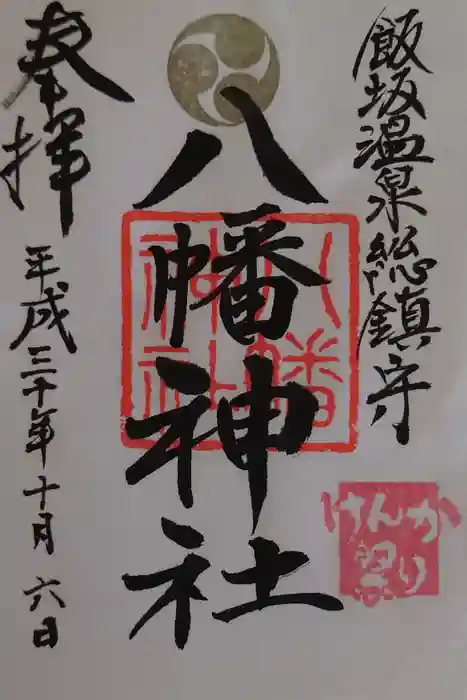 飯坂温泉総鎮守
八幡神社
八幡
神社
けんか
祭り
奉拝
平成三十年十月六日